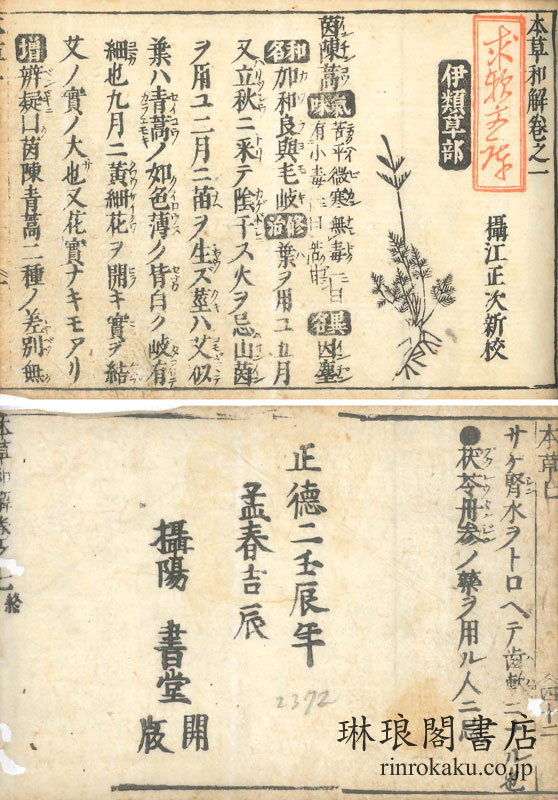 本草和解卷之一
攝江正次新校
伊類草部
茵陳蒿 氣味 苦平微寒無毒一曰
有小毒一曰苦甘 異名 因塵
和名 加和良與毛岐 修治 葉ヲ用ユ五月
又立秋ニ采テ陰干ス火ヲ忌山茵
ヲ用ユ二月ニ苗ヲ生ズ莖ハ艾ニ似
葉ハ青蒿ノ如色薄ク背白ク岐有
細也九月ニ黃細花ヲ開キ實ヲ結
艾ノ實ノ大也又花實ナキモアリ
增 辨疑ニ曰茵陳青蒿二種ノ差別無
サケ腎水ヲトロヘテ齒軟ニナル也
●茯苓丹參ノ藥ヲ用ル人ニ忌
正德二壬辰年
孟春吉辰
攝陽 書堂
開版
本草和解卷之七終
2372
琳琅閣書店
rinrokaku.co.jp